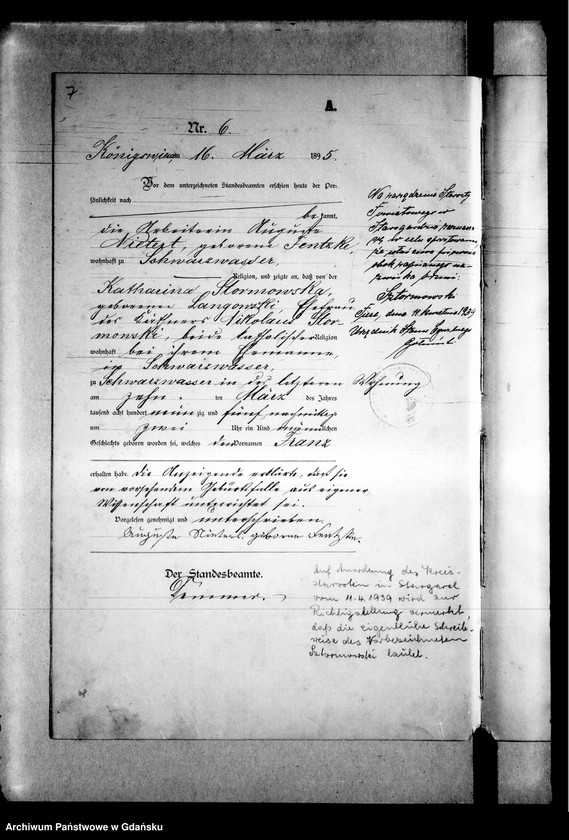 7
A.
Nr. 6.
Königswiese am 16. März 1895.
Vor dem unterzeichneten Standesbeamten erschien heute der Per-
sönlichkeit nach
bekannt,
die Arbeiterin Auguste
Nietert, geborene Jentzke,
wohnhaft zu Schwarzwasser,
Religion, und zeigte an, daß von der
Katharina Stormowska,
geborenen Langowski, Ehefrau
des Käthners Nikolaus Stor-
mowski, beide katholischer Religion
wohnhaft bei ihrem Ehemanne,
in Schwarzwasser,
zu Schwarzwasser in des letzteren Wohnung
am zehn ten März des Jahres
tausend acht hundert neun zig und fünf nachmittags
um zwei Uhr ein Kind männlichen
Geschlechts geboren worden sei, welches den Vornamen Franz
erhalten habe. Die Anzeigende erklärte, daß sie
von vorstehendem Geburtsfalle aus eigener
Wissenschaft unterrichtet sei.
Vorgelesen genehmigt und unterschrieben.
Auguste geborne
Der Standesbeamte.
Na zarządzenie Starosty
Powiatowego w
Stargardzie
się w celu sprostowania,
że właściwa pisownia
obok zapisanego na-
zwiska brzmi:
Sztormowski
dnia 11 kwietnia 1939
Urzędnik Stanu Cywilnego
Auf Anordnung des Kreis-
starosten in Stargard
vom 11.4.1939 wird zur
Richtigstellung vermerkt,
daß die eigentliche Schreib-
weise des Vorbezeichneten
Sztormowski lautet.
Archiwum Państwowe w Gdańsku